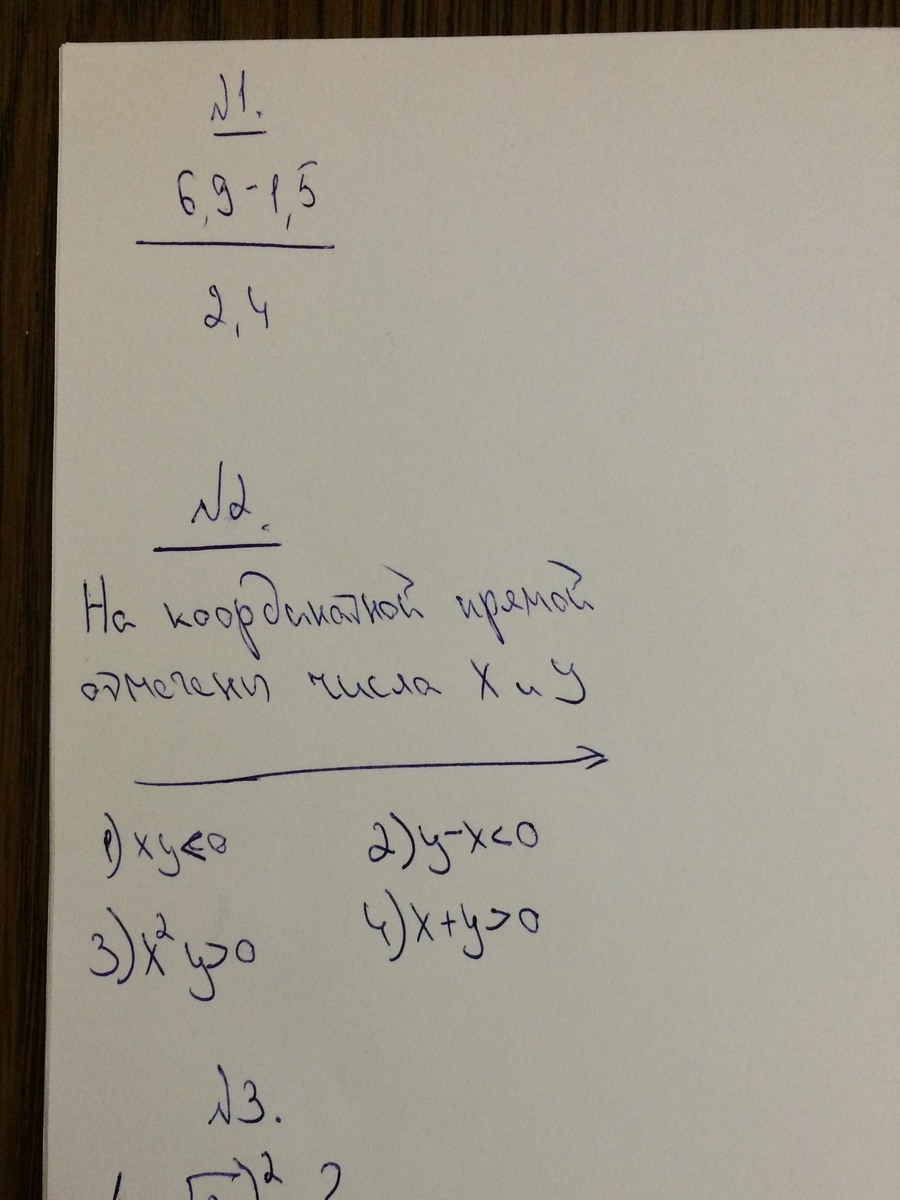 №1.
6,9-1,5
2,4
№2.
На координатной прямой
отмечены числа х и у
1) xy<0 2) y-x<0
3) x²y>0 4) x+y>0
№3.